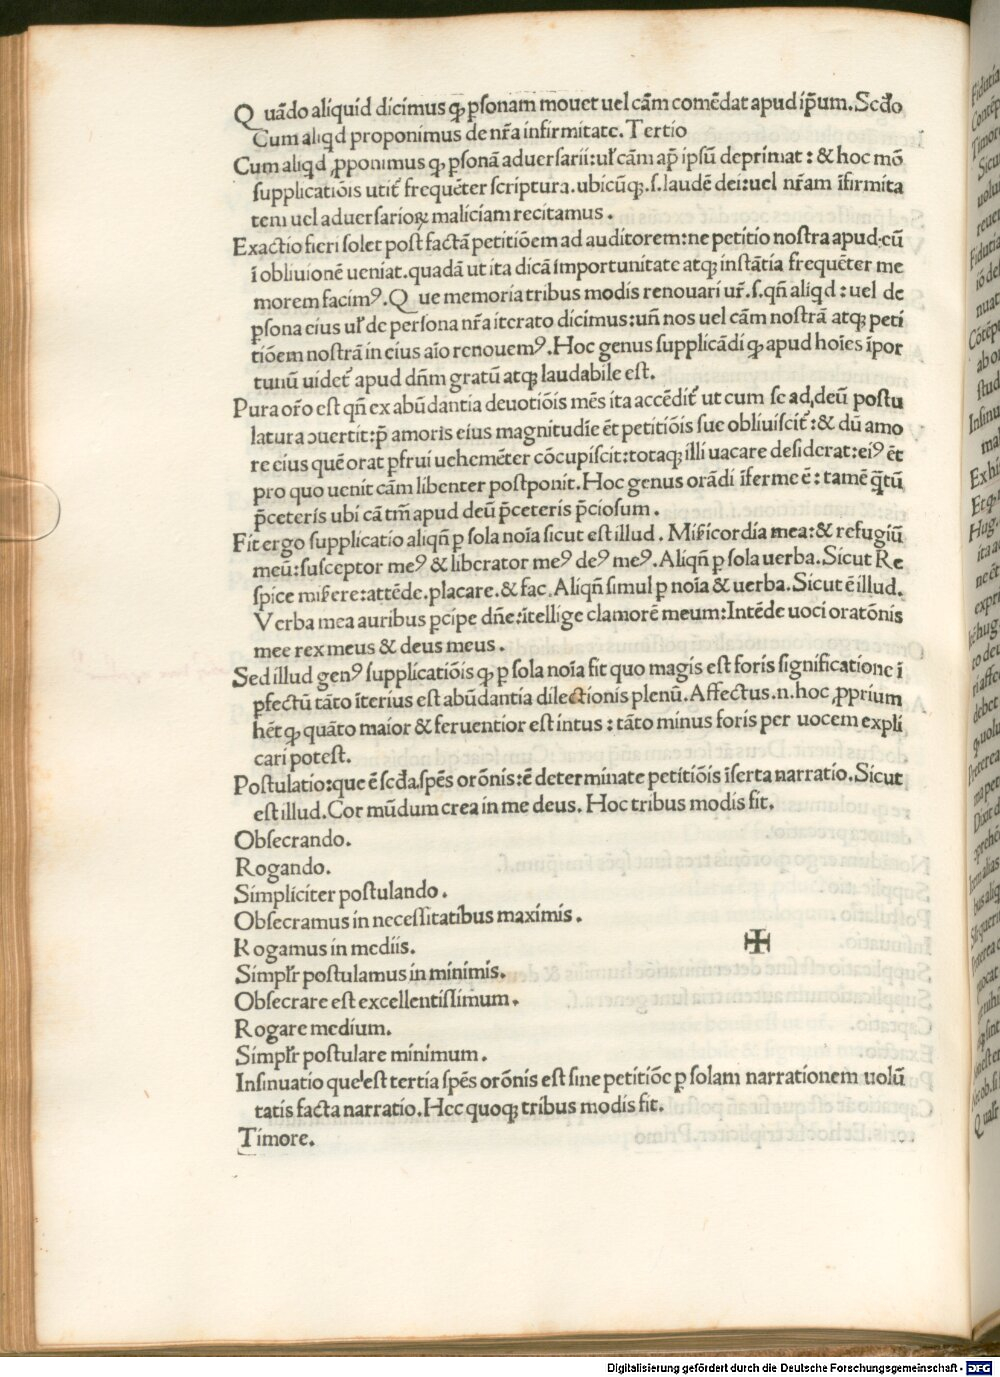 Quādo aliquid dicimus ꝙ ꝑsonam mouet uel cām comēdat apud ip̄um. Scd̄o
Cum aliqd proponimus de nr̄a infirmitate. Tertio
Cum aliqd ꝓponimus ꝙ ꝑsonā aduersarii: ul̉ cām ap̄ ipsū deprimat: & hoc mō
supplicatiōis utit̉ frequēter scriptura. ubicūqꝫ .s. laudē dei: uel nr̄am īfirmita
tem uel aduersarioꝝ maliciam recitamus.
Exactio fieri solet post factā petitiōem ad auditorem: ne petitio nostra apud eū
ī obliuionē ueniat. quadā ut ita dicā importunitate atqꝫ instātia frequēter me
morem facimꝰ. Que memoria tribus modis renouari ur̄. s. qn̄ aliqd: uel de
ꝑsona eius ul̉ de persona nr̄a iterato dicimus: un̄ nos uel cām nostrā atqꝫ peti
tiōem nostrā in eius aīo renouemꝰ. Hoc genus supplicādi ꝙ apud hoīes īpor
tunū uidet̉ apud dn̄m gratū atqꝫ laudabile est.
Pura or̄o est qn̄ ex abūdantia deuotiōis mēs ita accēdit̉ ut cum se ad deū postu
latura ↄuertit: p̄ amoris eius magnitudīe ēt petitiōis sue obliuiscit̉: & dū amo
re eius quē orat ꝑfrui uehemēter cōcupiscit: totaqꝫ illi uacare desiderat: eiꝰ ēt
pro quo uenit cām libenter postponit. Hoc genus orādi īferme ē: tamē q̄tū
p̄ceteris ubi cā tm̄ apud deū p̄ceteris p̄ciosum.
Fit ergo supplicatio aliqn̄ ꝑ sola noīa sicut est illud. Misericordia mea: & refugiū
meū: susceptor meꝰ & liberator meꝰ deꝰ meꝰ. Aliqn̄ ꝑ sola uerba. Sicut Re
spice miserere: attēde. placare. & fac. Aliqn̄ simul ꝑ noīa & uerba. Sicut ē illud.
Verba mea auribus ꝑcipe dn̄e: ītellige clamorē meum: Intēde uoci oratōnis
mee rex meus & deus meus.
Sed illud genꝰ supplicatiōis ꝙ ꝑ sola noīa fit quo magis est foris significatione ī
ꝑfectū tāto īterius est abūdantia dilectionis plenū. Affectus .n. hoc ꝓprium
hēt ꝙ quāto maior & feruentior est intus: tāto minus foris per uocem expli
cari potest.
Postulatio: que ē scd̄a spēs orōnis: ē determinate petitiōis īserta narratio. Sicut
est illud. Cor mūdum crea in me deus. Hoc tribus modis fit.
Obsecrando.
Rogando.
Simpliciter postulando.
Obsecramus in necessitatibus maximis.
Rogamus in mediis.
Simpl̉r postulamus in minimis.
Obsecrare est excellentissimum.
Rogare medium.
Simpl̉r postulare minimum.
Insinuatio que est tertia spēs orōnis est sine petitiōe ꝑ solam narrationem uolū
tatis facta narratio. Hec quoqꝫ tribus modis fit.
Timore.
Digitalisierung gefördert durch die Deutsche Forschungsgemeinschaft - DFG